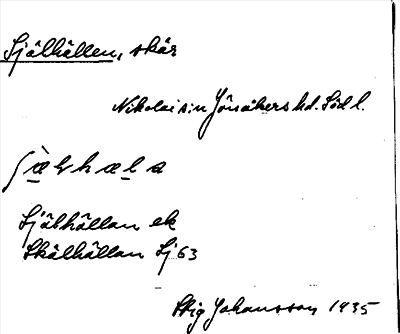 Själhällen, skär
Nikolai s:n Jönåkers hd. Södl.
Själhällan ek
Skälhällan Sj 63
Stig Johansson 1935